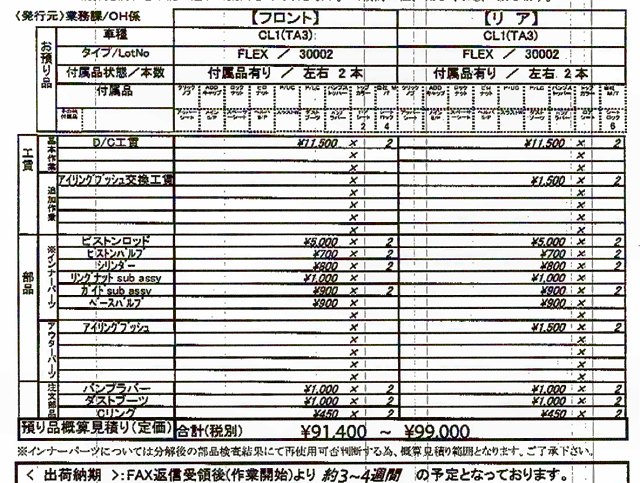 (発行元)業務課/OH係 【フロント】 【リア】
お預り品
車種 CL1(TA3) CL1(TA3)
タイプ/LotNo FLEX / 30002 FLEX / 30002
付属品状態/本数 付属品有り / 左右 2 本 付属品有り / 左右 2 本
付属品
2 4 6
工賃 基本作業
D/C工賃 ¥11,500 × 2 ¥11,500 × 2
× ×
× ×
追加作業
アイリングブッシュ交換工賃 × ¥1,500 × 2
× ×
× ×
× ×
× ×
部品 ※インナーパーツ
ピストンロッド ¥5,000 × 2 ¥5,000 × 2
ピストンバルブ ¥700 × 2 ¥700 × 2
シリンダー ¥800 × 2 ¥800 × 2
リングナット sub assy ¥1,000 × ¥1,000 ×
ガイド sub assy ¥900 × 2 ¥900 × 2
ベースバルブ ¥900 × ¥900 ×
× ×
アウターパーツ
アイリングブッシュ × ¥1,500 × 2
× ×
× ×
× ×
× ×
注文部品
バンプラバー ¥1,000 × 2 ¥1,000 × 2
ダストブーツ ¥1,000 × 2 ¥1,000 × 2
Cリング ¥450 × 2 ¥450 × 2
預り品概算見積り(定価) 合計(税別) ¥91,400 ~ ¥99,000
※インナーパーツについては分解後の部品検査結果にて再使用可否判断する為、概算見積り範囲となります。ご了承下さい。
< 出荷納期 >:FAX返信受領後(作業開始)より 約3~4週間 の予定となっております。